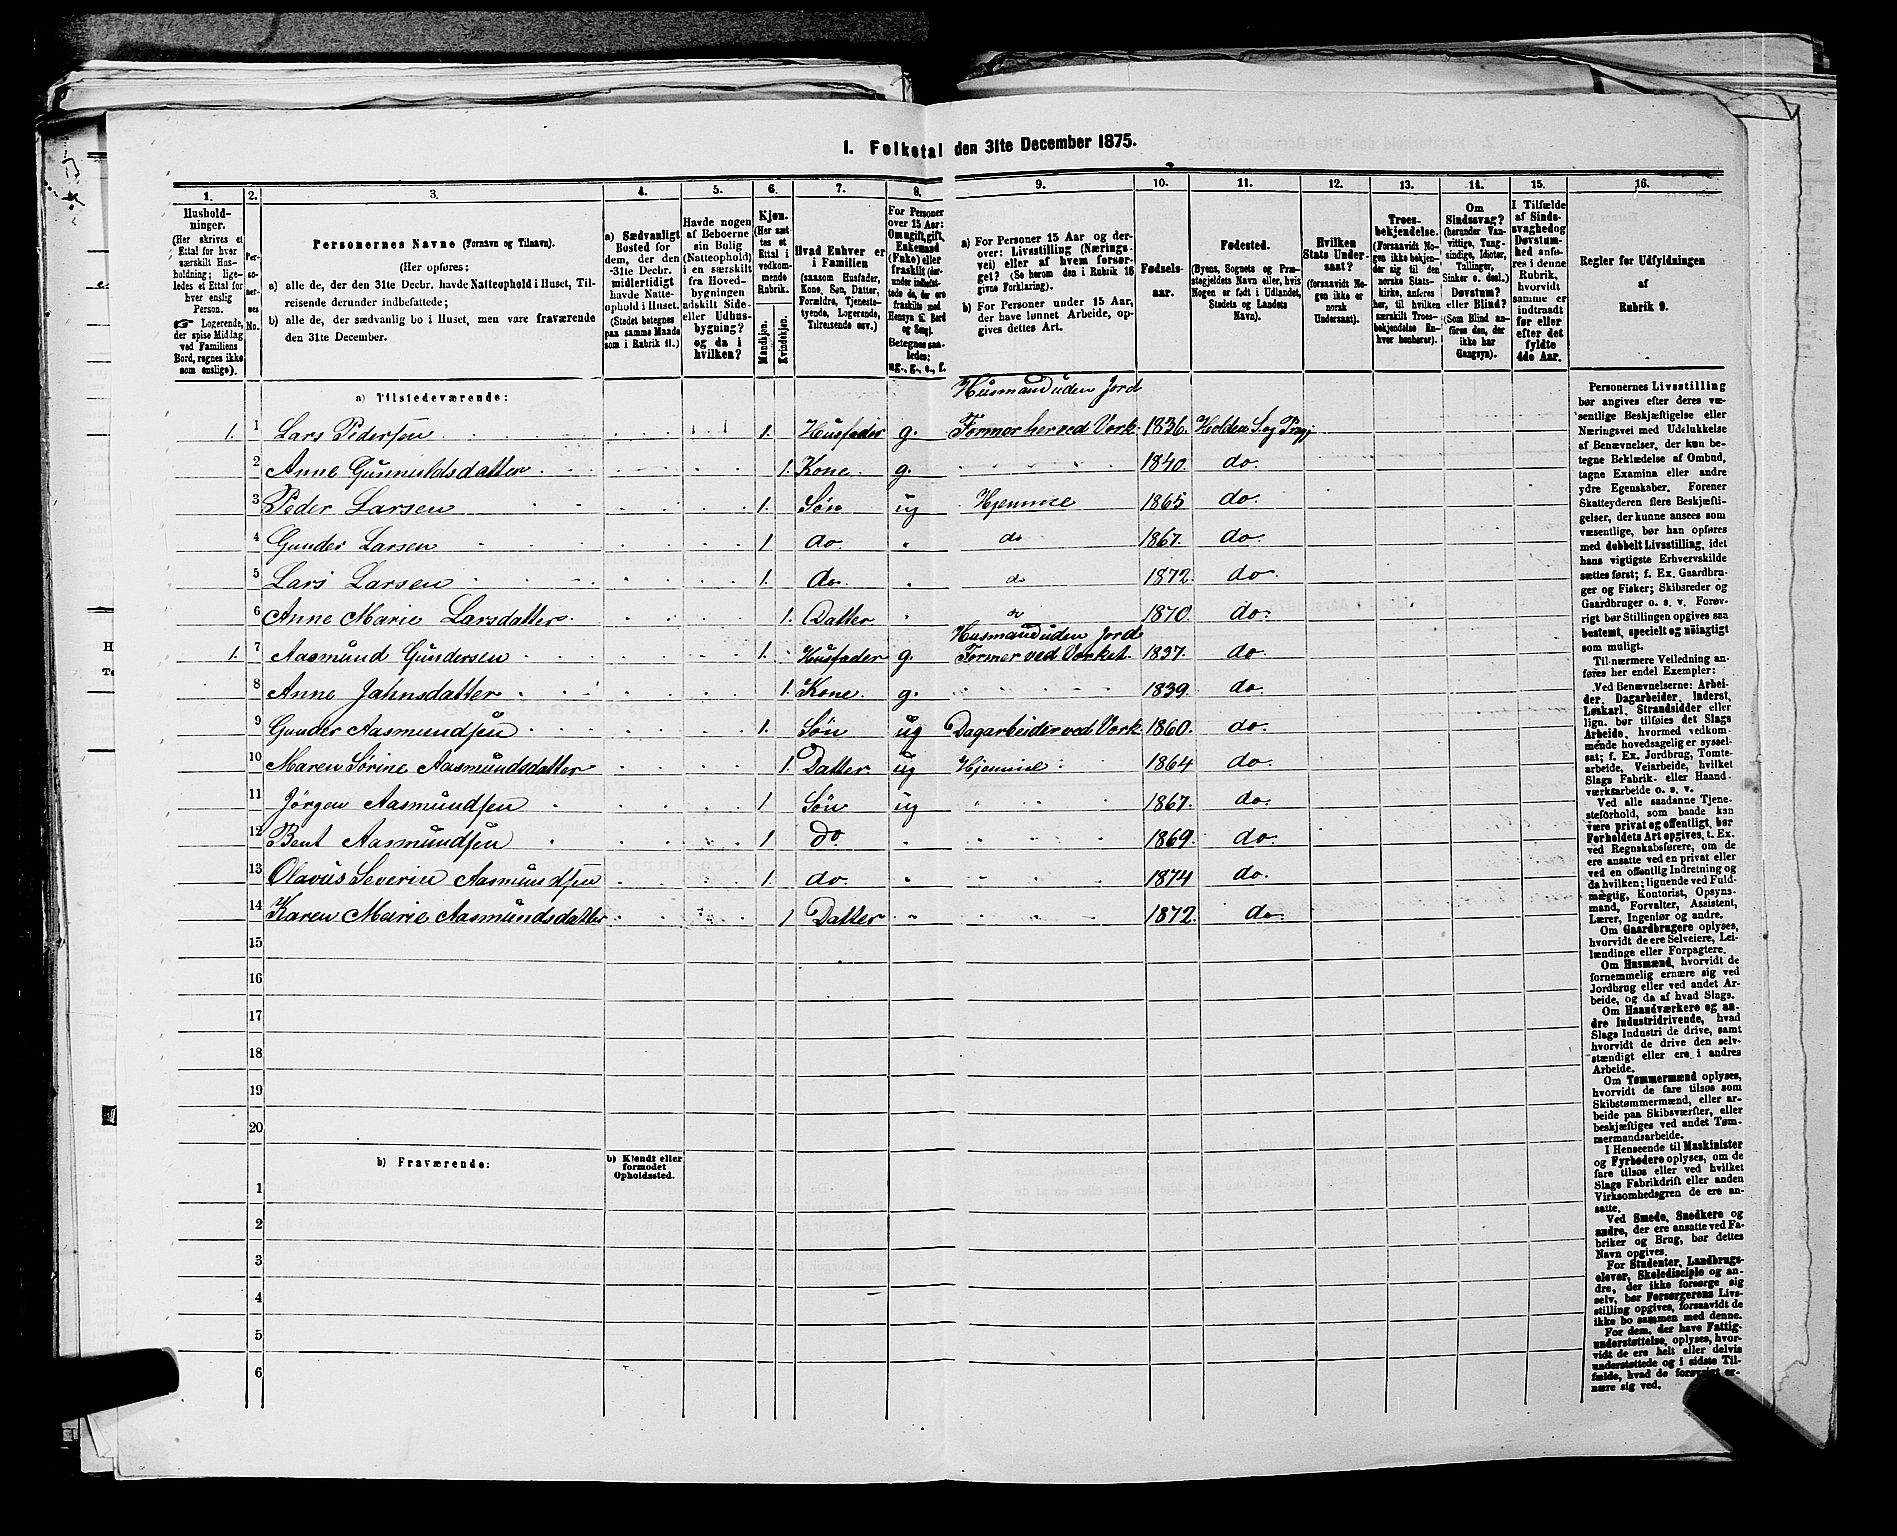 I. Folketal den 31te December 1875.
1. 2. 3. 4. 5. 6. 7. 8. 9. 10. 11. 12. 13. 14. 15. 16.
Hushold-
ninger.
(Her skrives et
Ettal for hver
særskilt Hus-
holdning; lige-
ledes et Ettal
for hver enslig
Person.
☞ Logerende,
der spise Middag
ved Familiens
Bord, regnes ikke
som enslige).
Per-
so-
ner-
nes
No.
Personernes Navne (Fornavn og Tilnavn).
(Her opføres:
a) alle de, der den 31te Decbr. havde Natteophold i Huset, Til-
reisende derunder indbefattede;
b) alle de, der sædvanlig bo i Huset, men vare fraværende
den 31te December.
a) Sædvanligt
Bosted for
dem, der den
31te Decbr.
midlertidigt
havde Natte-
ophold i Huset.
(Stedet betegnes
paa samme Maade
som i Rubrik 11.)
Havde nogen
af Beboerne
sin Bolig
(Natteophold)
i en særskilt
fra Hoved-
bygningen
adskilt Side-
eller Udhus-
bygning?
og da i
hvilken?
Kjøn.
(Her sæt-
tes et
Ettal i
vedkom-
mende
Rubrik.
Mandkjøn.
Kvindekjøn.
Hvad Enhver er
i Familien
(saasom Husfader,
Kone, Søn, Datter,
Forældre, Tjeneste-
tyende, Logerende,
Tilreisende osv.)
For Personer
over 15 Aar:
Om ugift, gift,
Enkemand
(Enke) eller
fraskilt (der-
under indbefat-
tede de, der ere
fraskilte med
Hensyn til Bord
og Seng).
Betegnes saa-
ledes:
ug., g., e., f.
a) For Personer 15 Aar og der-
over: Livsstilling (Nærings-
vei) eller af hvem forsør-
get? (Se herom den i Rubrik 16
givne Forklaring).
b) For Personer under 15 Aar,
der have lønnet Arbeide, op-
gives dettes Art.
Fødsels-
aar.
Fødested.
(Byens, Sognets og Præ-
stegjeldets Navn eller, hvis
Nogen er født i Udlandet,
Stedets og Landets
Navn).
Hvilken
Stats Under-
saat?
(forsaavidt No-
gen ikke er
norsk
Undersaat).
Troes-
bekjendelse.
(Forsaavidt No-
gen ikke bekjen-
der sig til den
norske Stats-
kirke, anføres
her, til hvilken
særskilt Troes-
bekjendelse En-
hver henhører).
Om
Sindssvag?
(herunder Van-
vittige, Tung-
sindige, Idioter,
Tullinger,
Sinker o. desl.)
Døvstum?
eller Blind?
(Som Blind an-
føres den, der
ikke har
Gangsyn).
I Tilfælde
af Sinds-
svaghed og
Døvstum-
hed anfø-
res i denne
Rubrik,
hvorvidt
samme er
indtraadt
før eller
efter det
fyldte
4de Aar.
Regler for Udfyldningen
af
Rubrik 9.
a) Tilstedeværende:
Husmand uden Jord
1. 1 Lars Pedersen 1. Husfader g. Former her ved Vork. 1836. Holden Sog Præj
2 Anne Gunnuldsdatter 1. Kone g. 1840. do.
3 Peder Larsen 1. Søn ug Hjemme 1865 do.
4 Gunder Larsen 1. do. " do 1867. do.
5 Lars Larsen 1. do. " do 1872. do.
6 Anne Marie Larsdatter. 1. Datter " do 1870. do.
Husmand uden Jord
1. 7 Aasmund Gundersen 1. Husfader g. Former ved Vorket. 1837. do
8 Anne Jahnsdatter 1. Kone. g. 1839. do.
9 Gunder Aasmundsen 1. Søn ug Dagarbeider ved Vork 1860. do.
10 Maren Sørine Aasmundsdatter 1. Datter ug Hjemme 1864 do.
11 Jörgen Aasmundsen 1 Søn ug 1867. do.
12 Bent Aasmundsen 1 Do. 1869. do.
13 Olavus Severin Aasmundsen 1. do. 1874 do.
14 Karen Marie Aasmundsdatter 1 Datter 1872. do.
15
16
17
18
19
20
b) Fraværende:
b) Kjendt eller
formodet
Opholdssted.
1
2
3
4
5
6
Personernes Livsstilling
bør angives efter deres væ-
sentlige Beskjæftigelse eller
Næringsvei med Udelukkelse
af Benævnelser, der kun be-
tegne Beklædelse af Ombud,
tagne Examina eller andre
ydre Egenskaber. Forener
Skatteyderen flere Beskjæfti-
gelser, der kunne ansees som
væsentlige, bør han opføres
med dobbelt Livsstilling, idet
hans vigtigste Erhvervskilde
sættes først; f. Ex. Gaardbru-
ger og Fisker; Skibsreder og
Gaardbruger o. s. v. Forøv-
rigt bør Stillingen opgives saa
bestemt, specielt og nøiagtigt
som muligt.
Til nærmere Veiledning an-
føres her endel Exempler:
Ved Benævnelserne: Arbei-
der, Dagarbeider, Inderst,
Løskarl, Strandsidder eller
lign. bør tilføies det Slags
Arbeide, hvormed vedkom-
mende hovedsagelig er syssel-
sat; f. Ex. Jordbrug, Tomte-
arbeide, Veiarbeide, hvilket
Slags Fabrik- eller Haand-
værksarbeide o. s. v.
Ved alle saadanne Tjene-
steforhold, som baade kan
være privat og offentligt, bør
Forholdets Art opgives, t. Ex.
ved Regnskabsførere, om de
ere ansatte ved en privat eller
ved en offentlig Indretning og
da hvilken; lignende ved Fuld-
mægtig, Kontorist, Opsyns-
mand, Forvalter, Assistent,
Lærer, Ingeniør og andre.
Om Gaardbrugere oplyses,
hvorvidt de ere Selveiere, Lei-
lændinge eller Forpagtere.
Om Husmænd, hvorvidt de
fornemmelig ernære sig ved
Jordbrug eller ved andet Ar-
beide, og da af hvad Slags.
Om Haandværkere og an-
dre Industridrivende, hvad
Slags Industri de drive, samt
hvorvidt de drive den selv-
stændigt eller ere i andres
Arbeide.
Om Tømmermænd oplyses,
hvorvidt de fare tilsøs som
Skibstømmermænd, eller ar-
beide paa Skibsværfter, eller
beskjæftiges ved andet Tøm-
mermandsarbeide.
I Henseende til Maskinister
og Fyrbødere oplyses, om de
fare tilsøs eller ved hvilket
Slags Fabrikdrift eller anden
Virksomhedsgren de ere an-
satte.
Ved Smede, Snedkere og
andre, der ere ansatte ved Fa-
briker og Brug, bør dettes
Navn opgives.
For Studenter, Landbrugs-
elever, Skoledisciple og an-
dre, der ikke forsørge sig
selv, bør Forsørgerens Livs-
stilling opgives, forsaavidt de
ikke bo sammen med denne.
For dem, der have Fattig-
understøttelse, oplyses, hvor-
vidt de ere helt eller delvis
understøttede og i sidste Til-
fælde, hvad de forøvrigt er-
nære sig ved.